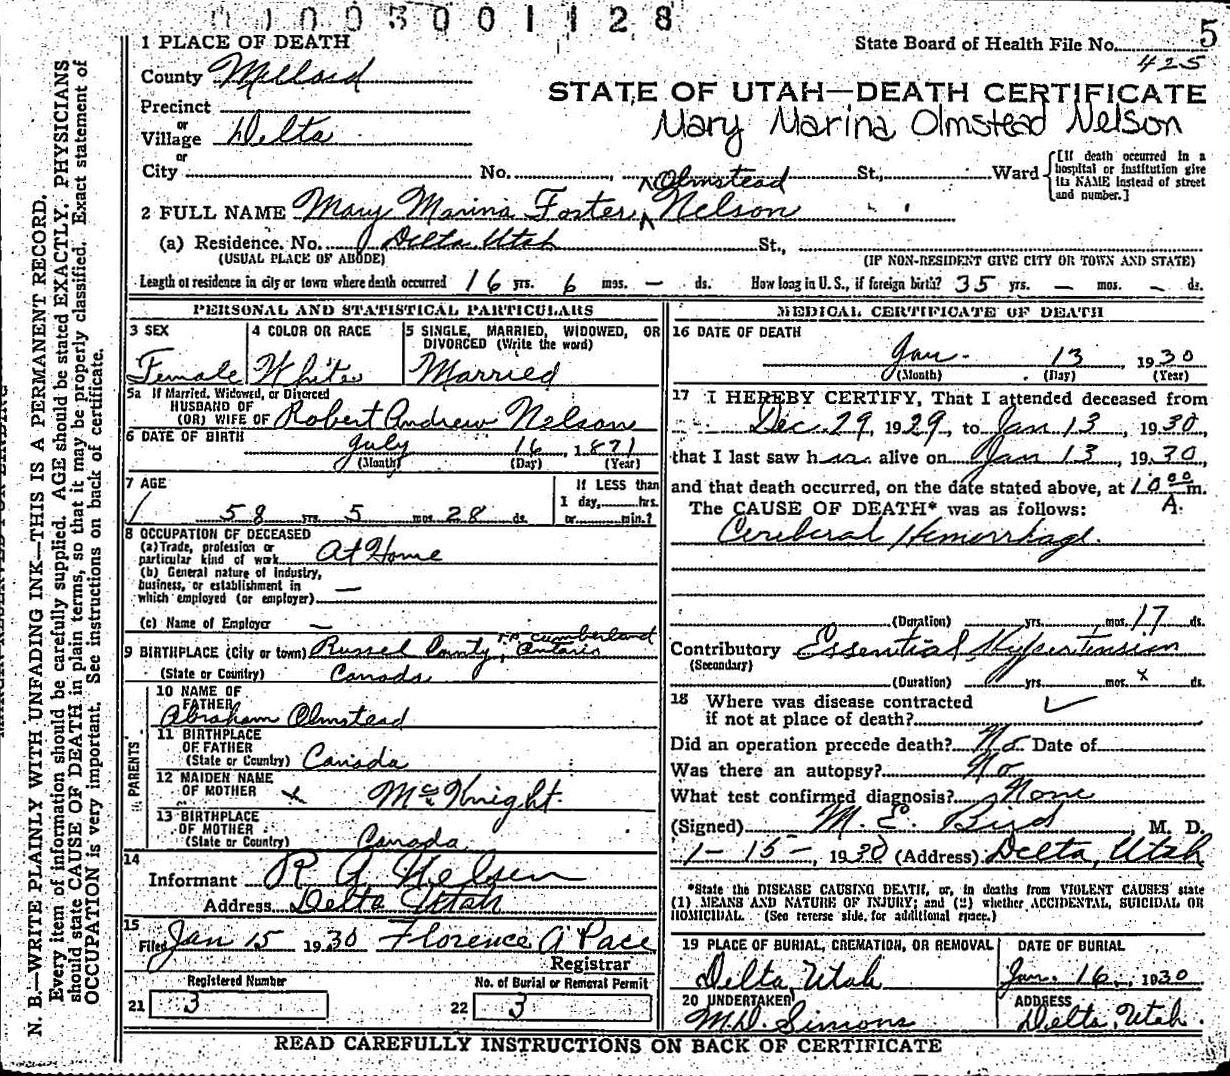 0 1 0 0 3 0 0 1 1 2 8
1 PLACE OF DEATH
State Board of Health File No. 5
425
County Millard
STATE OF UTAH—DEATH CERTIFICATE
Precinct
or
Village Delta
Mary Marina Olmstead Nelson
or
City No. , St., Ward
[If death occurred in a
hospital or institution give
its NAME instead of street
and number.]
Olmstead
2 FULL NAME Mary Marina Foster ^ Nelson
(a) Residence. No. Delta, Utah St.,
(USUAL PLACE OF ABODE) (IF NON-RESIDENT GIVE CITY OR TOWN AND STATE)
Length of residence in city or town where death occurred 16 yrs. 6 mos. — ds. How long in U. S., if foreign birth? 35 yrs. — mos. — ds.
PERSONAL AND STATISTICAL PARTICULARS
3 SEX
Female
4 COLOR OR RACE
White
5 SINGLE, MARRIED, WIDOWED, OR
DIVORCED (Write the word)
Married
5a If Married, Widowed, or Divorced
HUSBAND OF
(OR) WIFE OF Robert Andrew Nelson
6 DATE OF BIRTH July 16, 1871
(Month) (Day) (Year)
7 AGE
58 yrs. 5 mos. 28 ds.
If LESS than
1 day, hrs.
or min.?
8 OCCUPATION OF DECEASED
(a) Trade, profession or
particular kind of work At Home
(b) General nature of industry,
business, or establishment in
which employed (or employer) —
(c) Name of Employer —
9 BIRTHPLACE (City or town) Russel County, Cumberland Ontario
(State or Country) Canada
PARENTS
10 NAME OF
FATHER
Abraham Olmstead
11 BIRTHPLACE
OF FATHER
(State or Country) Canada
12 MAIDEN NAME
OF MOTHER x McKnight
13 BIRTHPLACE
OF MOTHER
(State or Country) Canada
14
Informant R A Nelson
Address Delta Utah
15
Filed Jan 15 1930 Florence A Pace
Registrar
Registered Number
21 3
No. of Burial or Removal Permit
22 3
MEDICAL CERTIFICATE OF DEATH
16 DATE OF DEATH
Jan. 13 1930
(Month) (Day) (Year)
17 I HEREBY CERTIFY, That I attended deceased from
Dec. 29, 1929, to Jan 13, 1930,
that I last saw her alive on Jan 13, 1930,
and that death occurred, on the date stated above, at 10 00 m.
A.
The CAUSE OF DEATH* was as follows:
Cereberal Hemorrhage.
(Duration) yrs. mos. 17 ds.
Contributory Essential Hypertension
(Secondary)
(Duration) yrs. mos. x ds.
18 Where was disease contracted
if not at place of death? ✓
Did an operation precede death? No Date of
Was there an autopsy? No
What test confirmed diagnosis? None
(Signed) M. E. Bird M. D.
1-15-, 1930 (Address) Delta, Utah
*State the DISEASE CAUSING DEATH, or, in deaths from VIOLENT CAUSES state
(1) MEANS AND NATURE OF INJURY; and (2) whether ACCIDENTAL, SUICIDAL OR
HOMICIDAL. (See reverse side for additional space.)
19 PLACE OF BURIAL, CREMATION, OR REMOVAL
Delta, Utah
DATE OF BURIAL
Jan. 16, 1930
20 UNDERTAKER
M.D. Simons
ADDRESS
Delta, Utah.
READ CAREFULLY INSTRUCTIONS ON BACK OF CERTIFICATE
N. B.—WRITE PLAINLY WITH UNFADING INK—THIS IS A PERMANENT RECORD.
Every item of information should be carefully supplied. AGE should be stated EXACTLY. PHYSICIANS
should state CAUSE OF DEATH in plain terms, so that it may be properly classified. Exact statement of
OCCUPATION is very important. See instructions on back of certificate.